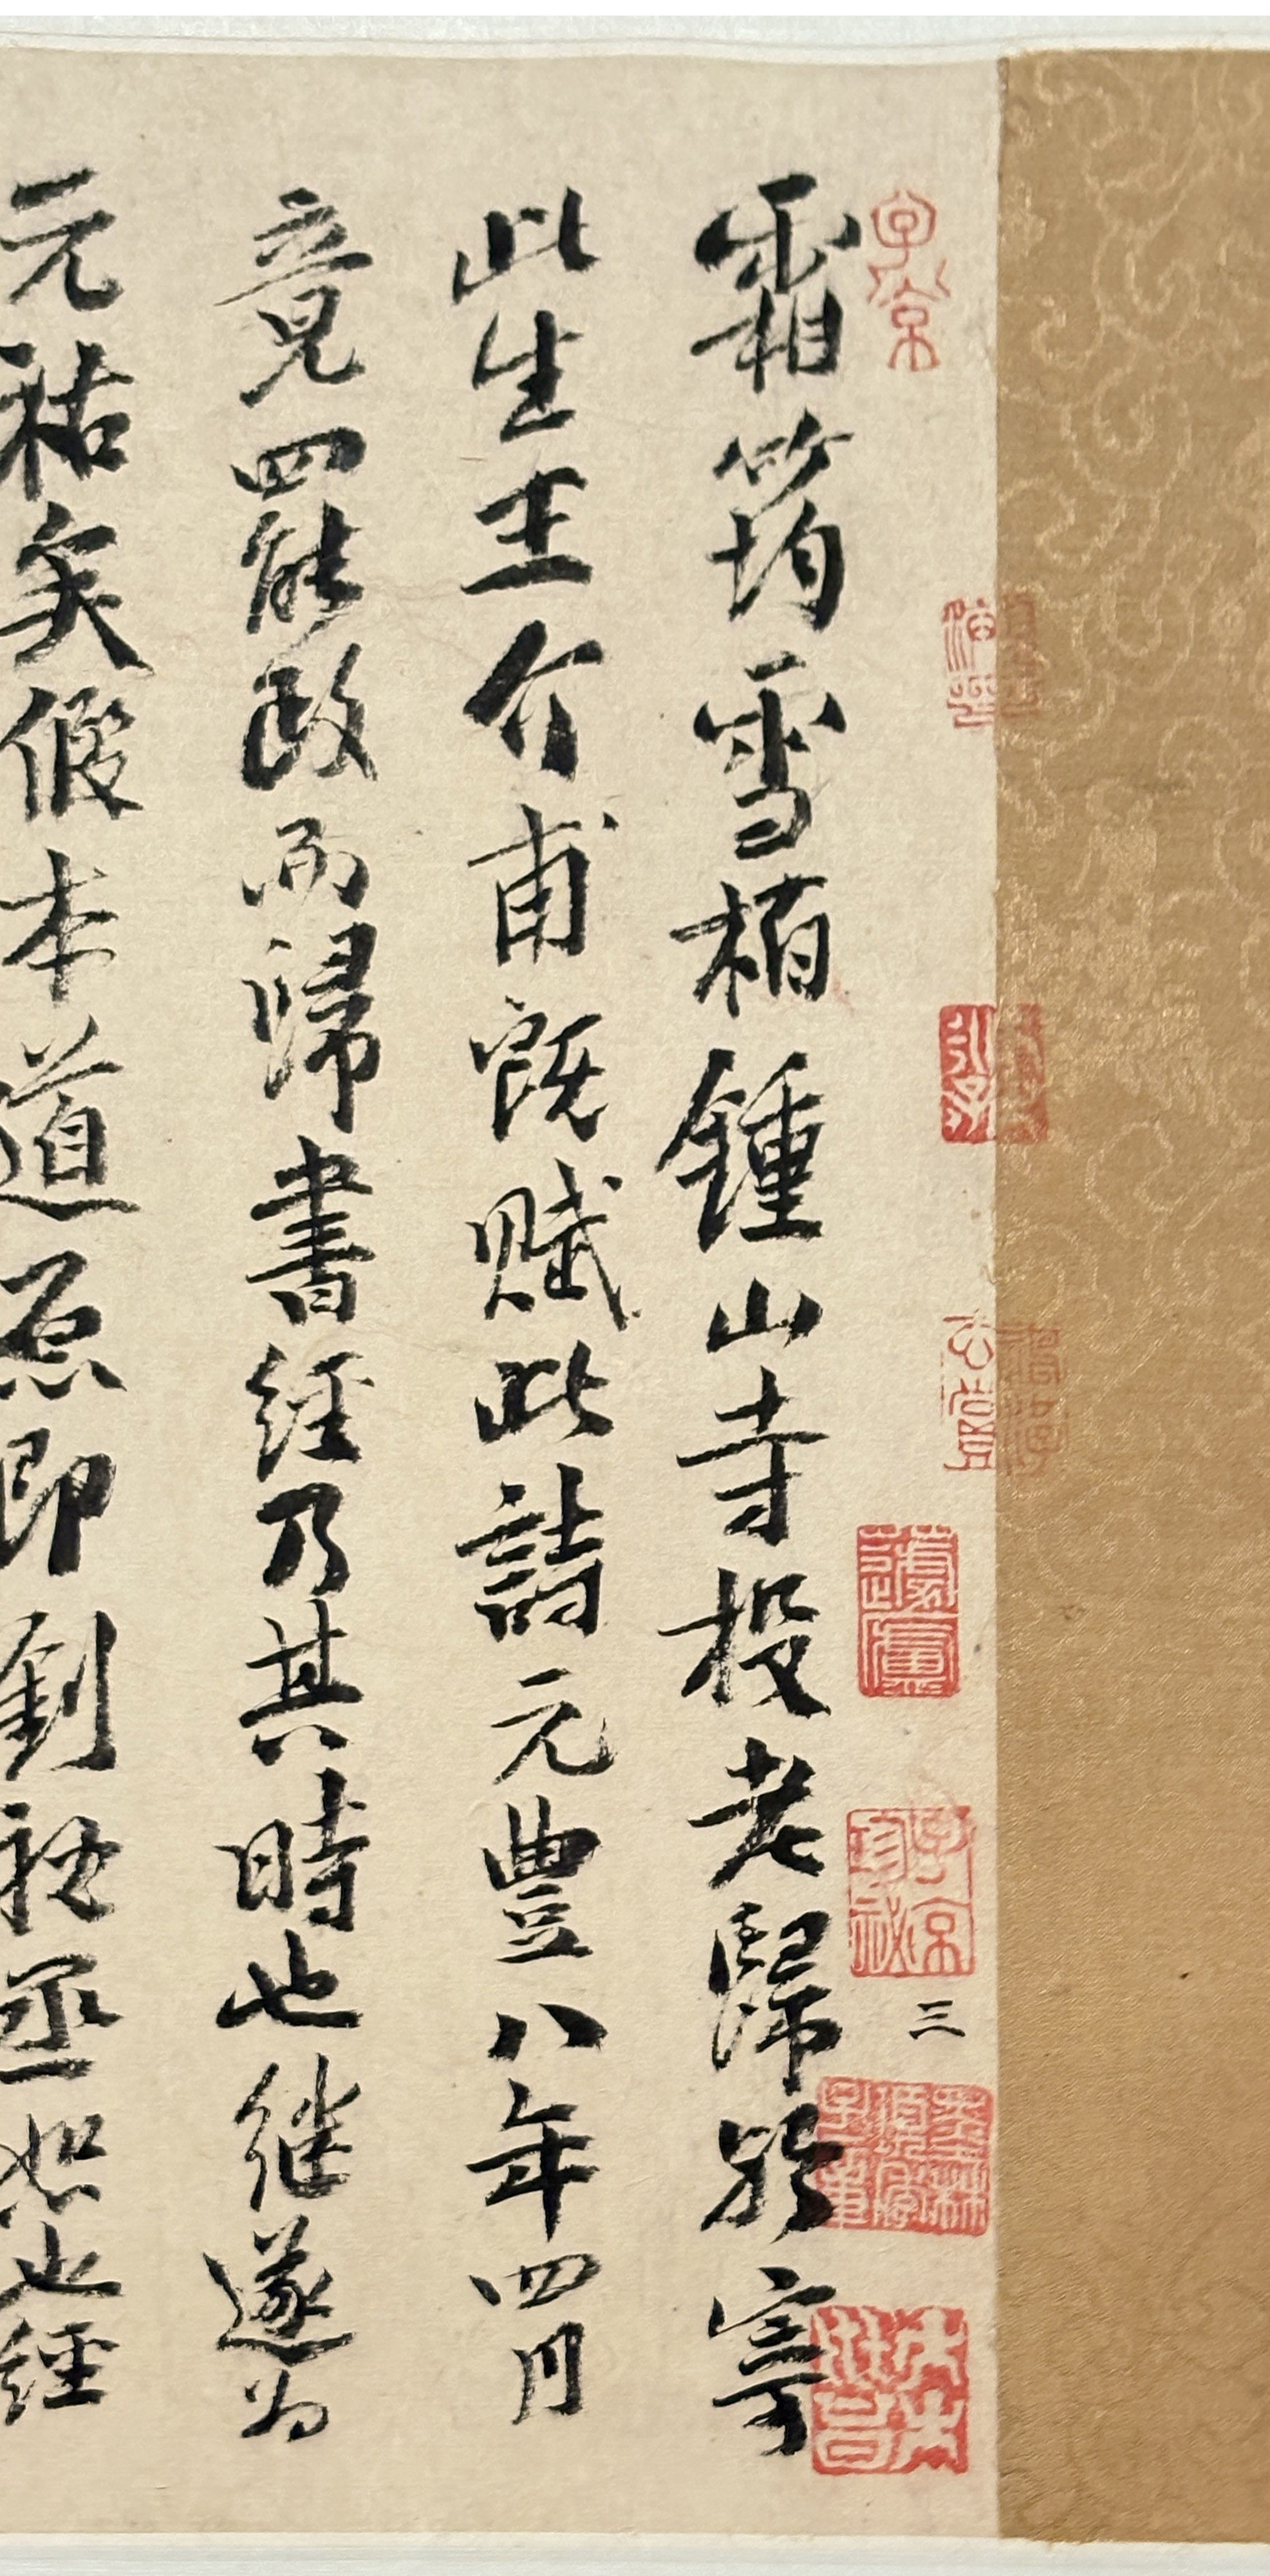 霜筠雪柏鍾山寺投老歸歟寄
此生王介甫既賦此詩元豐八年四月
竟罷政而歸書經乃其時也繼遂為
元祐矣假本道原即劉秘丞恕也經
子京
三